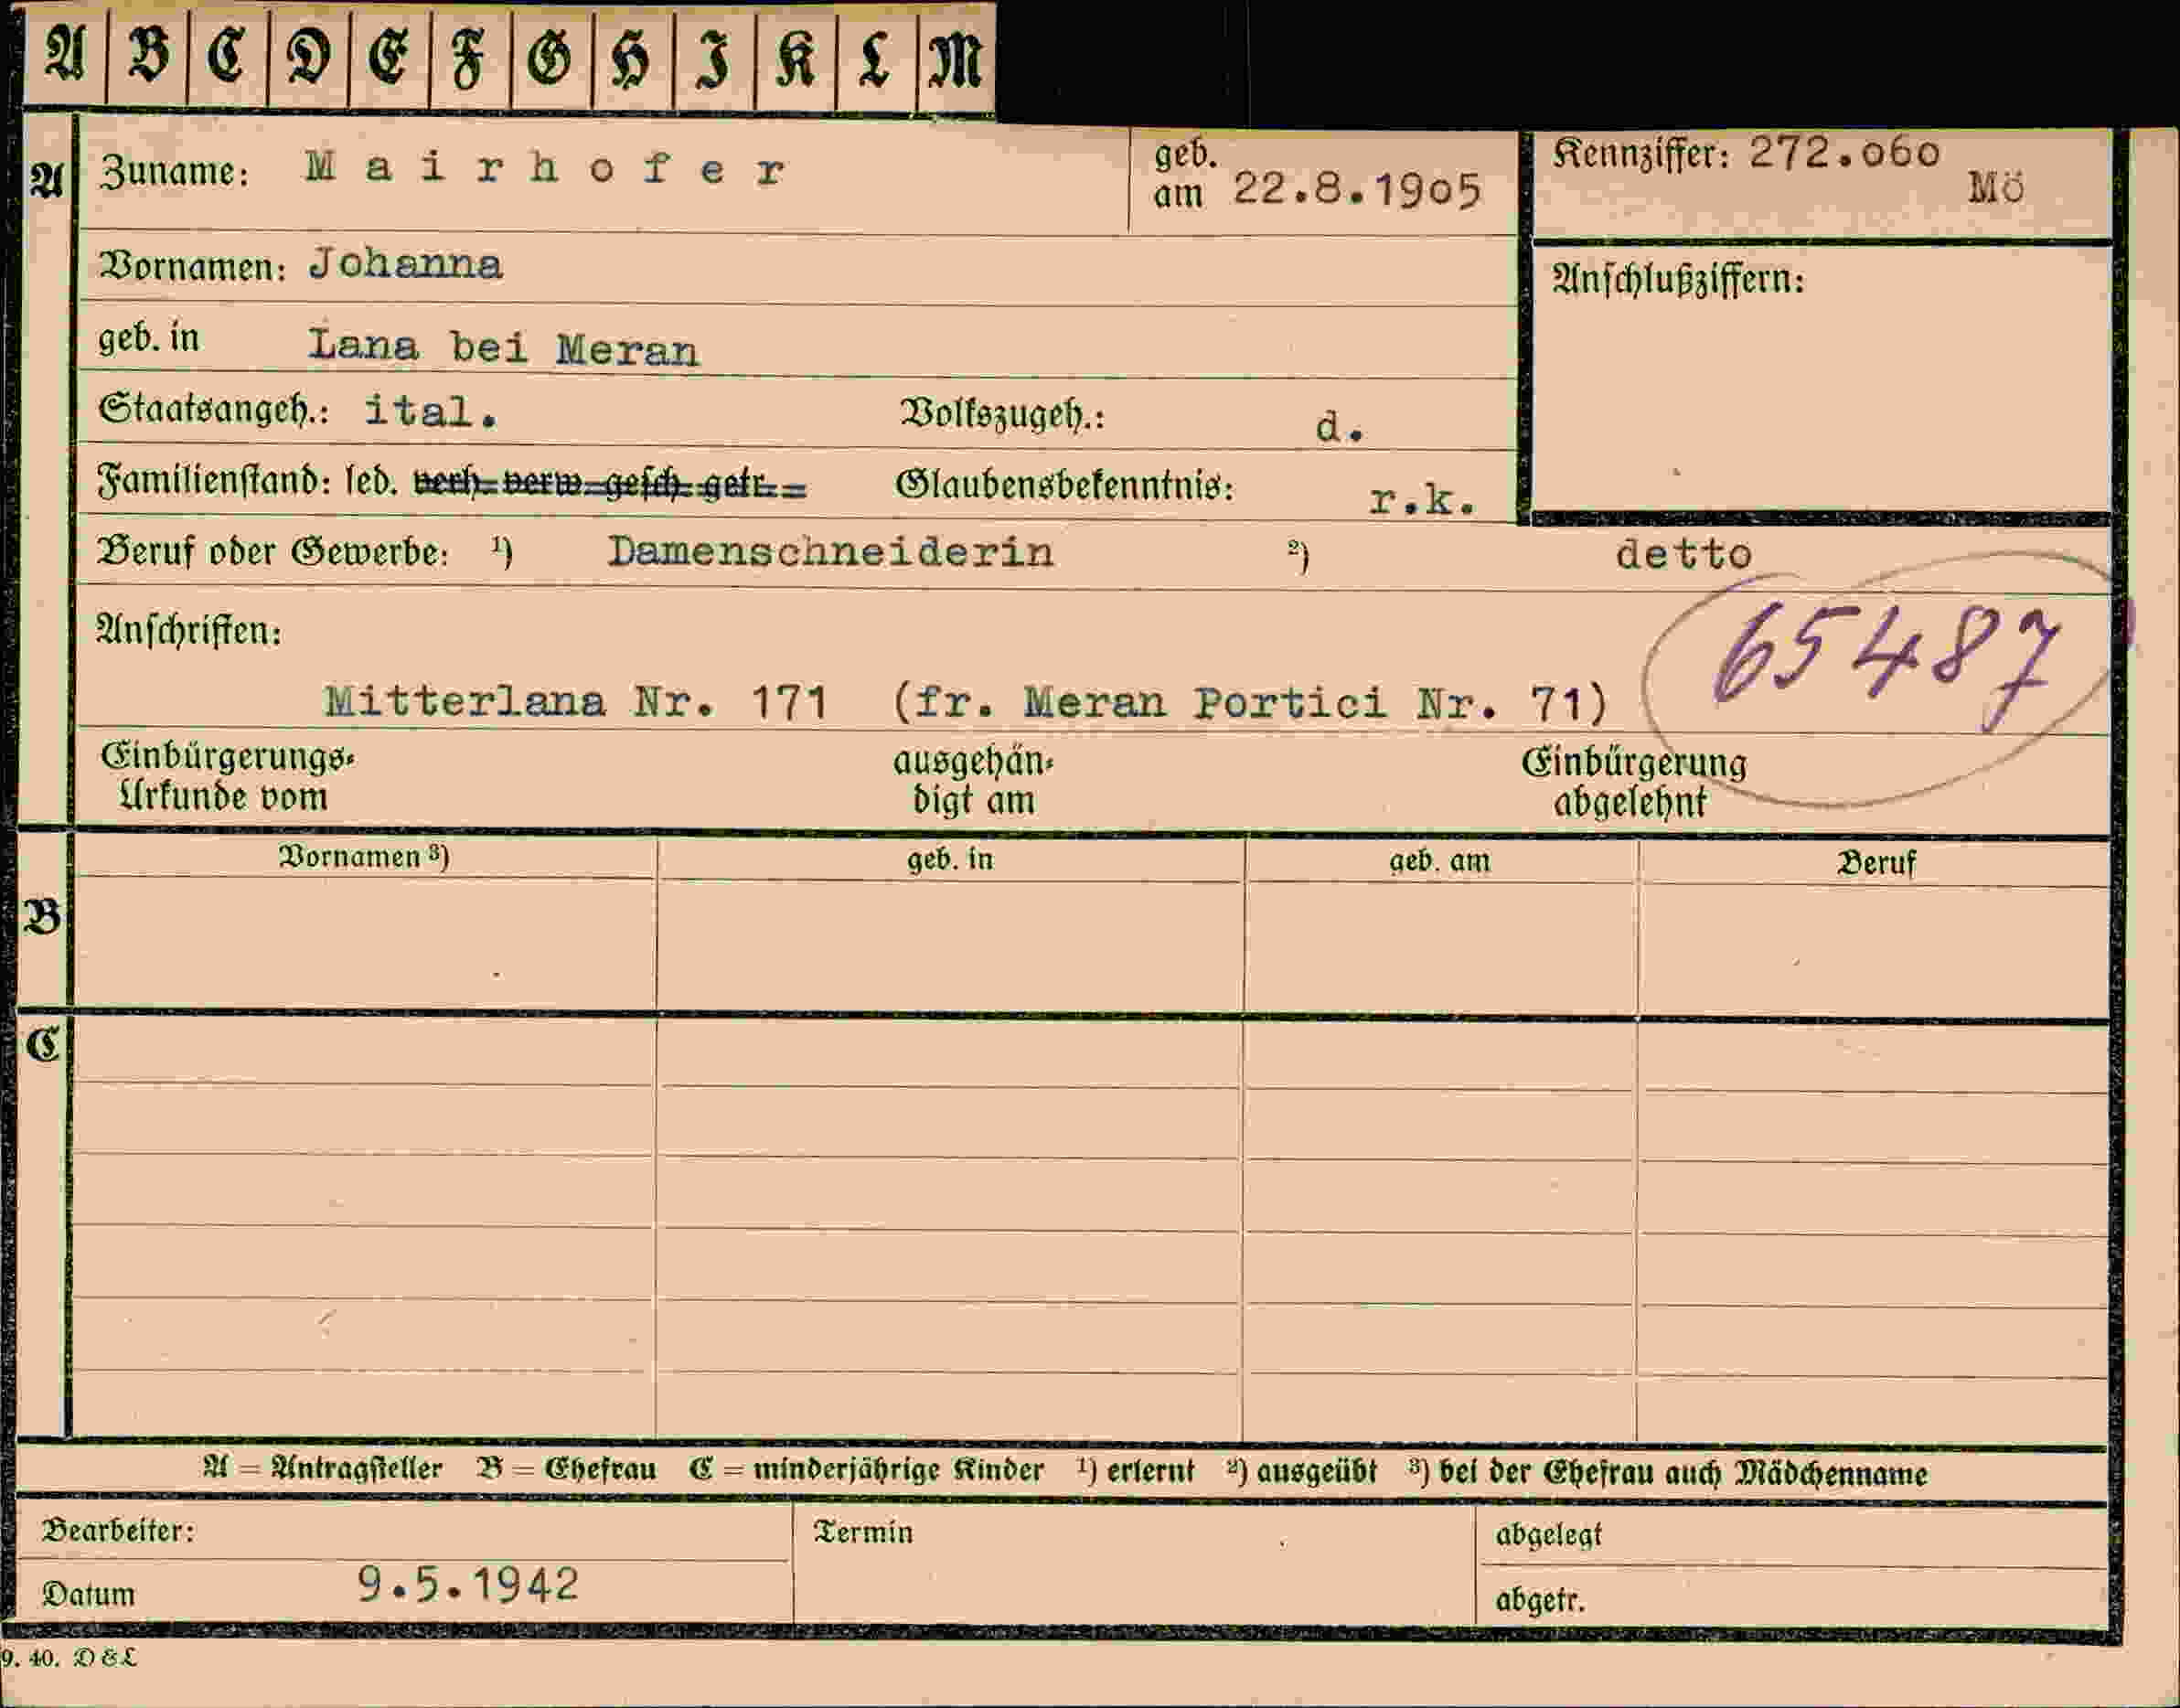 A B C D E F G H I K L M
A Zuname: Mairhofer geb. am 22.8.1905 Kennziffer: 272.060 Mö
Vornamen: Johanna Anschlußziffern:
geb. in Lana bei Meran
Staatsangeh.: ital. Volkszugeh.: d.
Familienstand: led. verh. verw. gesch. getr. Glaubensbekenntnis: r.k.
Beruf oder Gewerbe: ¹) Damenschneiderin ²) detto
Anschriften: 65487
Mitterlana Nr. 171 (fr. Meran Portici Nr. 71)
Einbürgerungs- ausgehän- Einbürgerung
Urkunde vom digt am abgelehnt
Vornamen ³) geb. in geb. am Beruf
B
C
A = Antragsteller B = Ehefrau C = minderjährige Kinder ¹) erlernt ²) ausgeübt ³) bei der Ehefrau auch Mädchenname
Bearbeiter: Termin abgelegt
Datum 9.5.1942 abgetr.
9. 40. D & L